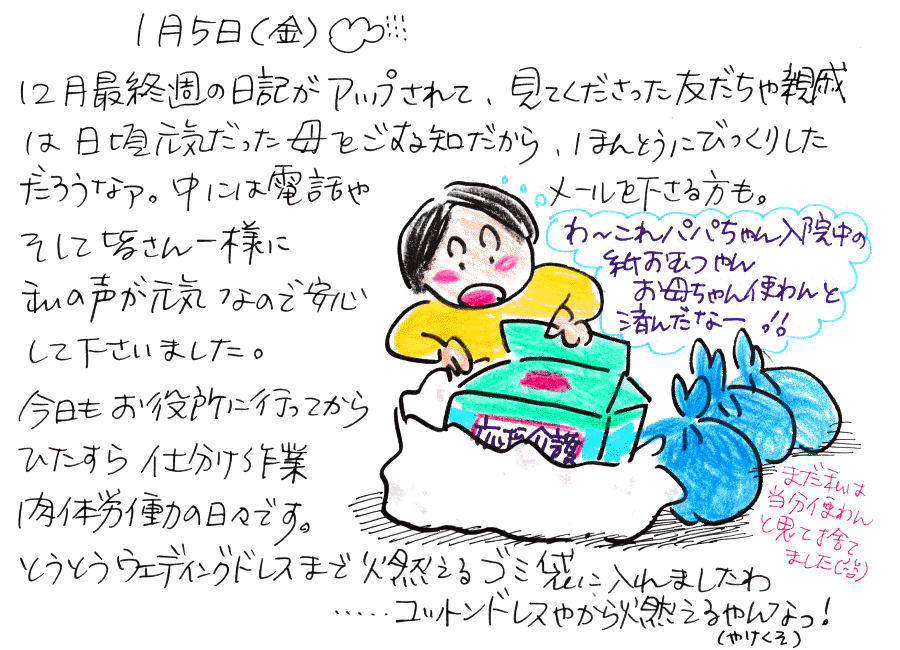 1月5日(金)
12月最終週の日記がアップされて、見てくださった友だちや親戚
は日頃元気だった母をご存知だから、ほんとうにびっくりした
だろうなァ。中には電話や メールを下さる方も。
そして皆さん一様に
私の声が元気なので安心
して下さいました。
今日もお役所に行ってから
ひたすら仕分け作業
肉体労働の日々です。
とうとうウェディングドレスまで燃えるゴミ袋に入れましたわ
……コットンドレスやから燃えるやんなっ!
(やけくそ)
わ〜これパパちゃん入院中の
紙おむつやん
お母ちゃん使わんと
済んだなー!!
介護
まだ私は
当分使わん
と思て捨て
ました(笑)